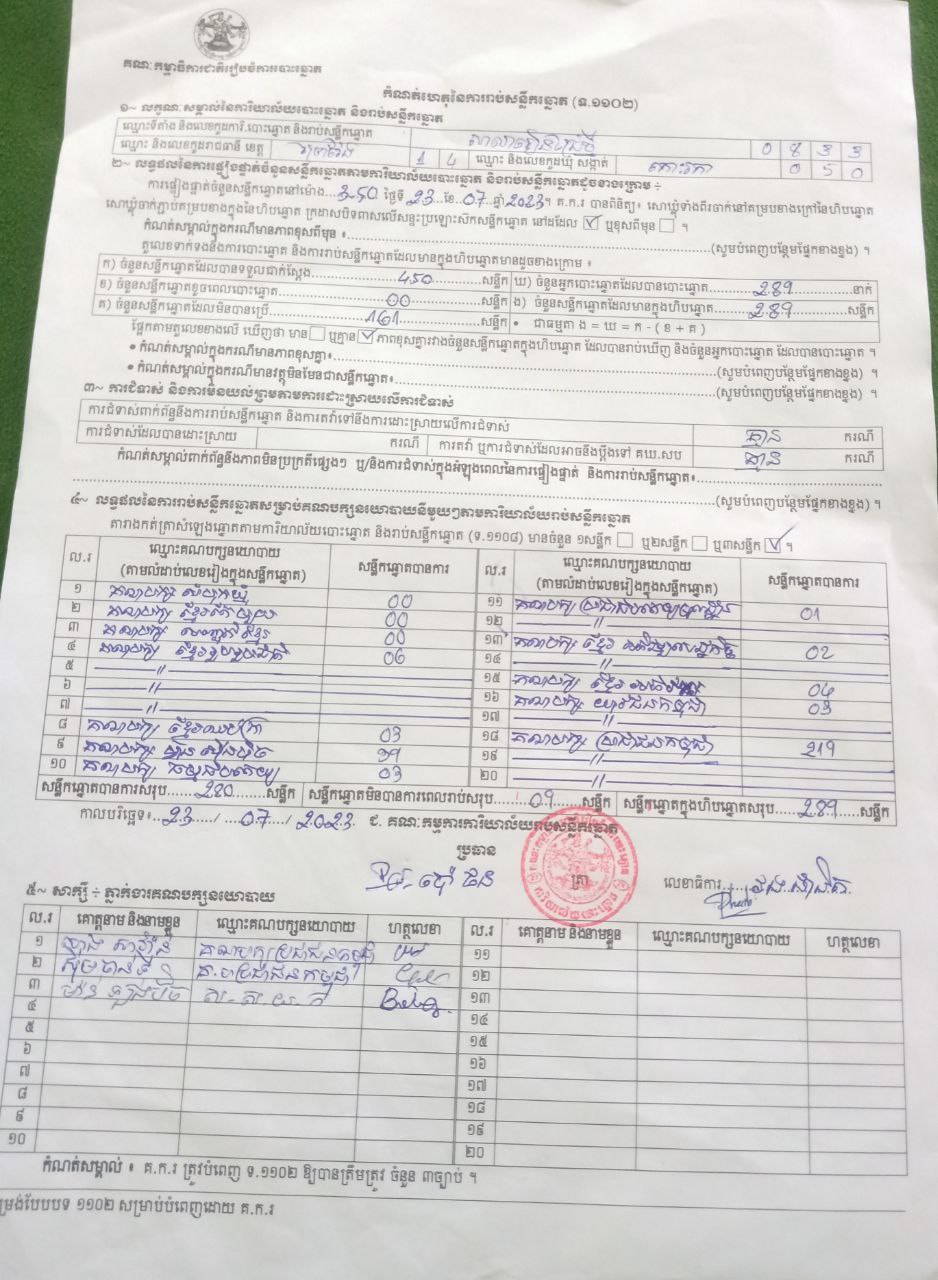 គណៈកម្មាធិការជាតិរៀបចំការបោះឆ្នោត
កំណត់ហេតុនៃការរាប់សន្លឹកឆ្នោត (ទ.១១០២)
១~ លក្ខណៈសម្គាល់នៃការិយាល័យបោះឆ្នោត និងរាប់សន្លឹកឆ្នោត
ឈ្មោះទីតាំង និងលេខកូដការិ.បោះឆ្នោត និងរាប់សន្លឹកឆ្នោត 0 8 3 3
ឈ្មោះ និងលេខកូដរាជធានី ខេត្ត 1 4 ឈ្មោះ និងលេខកូដឃុំ សង្កាត់ 0 5 0
២~ លទ្ធផលនៃការផ្ទៀងផ្ទាត់ចំនួនសន្លឹកឆ្នោតតាមការិយាល័យបោះឆ្នោត និងរាប់សន្លឹកឆ្នោតដូចខាងក្រោម ÷
ការផ្ទៀងផ្ទាត់ចំនួនសន្លឹកឆ្នោតនៅម៉ោង...3:50 ថ្ងៃទី 23 ខែ..07..ឆ្នាំ 2023។ គ.ក.រ បានពិនិត្យ៖ សោឃ្លុំទាំងពីរចាក់នៅគម្របខាងក្រៅនៃហិបឆ្នោត
សោឃ្លុំចាក់ភ្ជាប់គម្របខាងក្នុងនៃហិបឆ្នោត ក្រដាសបិទពាសលើសន្ទះប្រឡោះស៊កសន្លឹកឆ្នោត នៅដដែល ☑ ឬខុសពីមុន ☐ ។
កំណត់សម្គាល់ក្នុងករណីមានភាពខុសពីមុន ៖...............(សូមបំពេញបន្ថែមផ្នែកខាងខ្នង) ។
តួលេខទាក់ទងនឹងការបោះឆ្នោត និងការរាប់សន្លឹកឆ្នោតដែលមានក្នុងហិបឆ្នោតមានដូចខាងក្រោម ៖
ក) ចំនួនសន្លឹកឆ្នោតដែលបានទទួលជាក់ស្តែង......450......សន្លឹក ឃ) ចំនួនអ្នកបោះឆ្នោតដែលបានបោះឆ្នោត......289......នាក់
ខ) ចំនួនសន្លឹកឆ្នោតខូចពេលបោះឆ្នោត......00......សន្លឹក ង) ចំនួនសន្លឹកឆ្នោតដែលមានក្នុងហិបឆ្នោត......289......សន្លឹក
គ) ចំនួនសន្លឹកឆ្នោតដែលមិនបានប្រើ......161......សន្លឹក • ជាធម្មតា ង = ឃ = ក - ( ខ + គ )
ផ្អែកតាមតួលេខខាងលើ ឃើញថា មាន ☐ ឬគ្មាន ☑ ភាពខុសគ្នារវាងចំនួនសន្លឹកឆ្នោតក្នុងហិបឆ្នោត ដែលបានរាប់ឃើញ និងចំនួនអ្នកបោះឆ្នោត ដែលបានបោះឆ្នោត ។
• កំណត់សម្គាល់ក្នុងករណីមានភាពខុសគ្នា៖...............(សូមបំពេញបន្ថែមផ្នែកខាងខ្នង) ។
• កំណត់សម្គាល់ក្នុងករណីមានវត្ថុមិនមែនជាសន្លឹកឆ្នោត៖...............(សូមបំពេញបន្ថែមផ្នែកខាងខ្នង) ។
៣~ ការជំទាស់ និងការមិនយល់ព្រមតាមការដោះស្រាយលើការជំទាស់
ការជំទាស់ពាក់ព័ន្ធនឹងការរាប់សន្លឹកឆ្នោត និងការតវ៉ាទៅនឹងការដោះស្រាយលើការជំទាស់ គ្មាន ករណី
ការជំទាស់ដែលបានដោះស្រាយ ករណី ការតវ៉ា ឬការជំទាស់ដែលអាចនឹងប្តឹងទៅ គឃ.សប គ្មាន ករណី
កំណត់សម្គាល់ពាក់ព័ន្ធនឹងភាពមិនប្រក្រតីផ្សេងៗ ឬ/និងការជំទាស់ក្នុងអំឡុងពេលនៃការផ្ទៀងផ្ទាត់ និងការរាប់សន្លឹកឆ្នោត៖
...............(សូមបំពេញបន្ថែមផ្នែកខាងខ្នង) ។
៤~ លទ្ធផលនៃការរាប់សន្លឹកឆ្នោតសម្រាប់គណបក្សនយោបាយនីមួយៗតាមការិយាល័យរាប់សន្លឹកឆ្នោត
តារាងកត់ត្រាសំឡេងឆ្នោតតាមការិយាល័យបោះឆ្នោត និងរាប់សន្លឹកឆ្នោត (ទ.១១០៨) មានចំនួន ១សន្លឹក ☐ ឬ២សន្លឹក ☐ ឬ៣សន្លឹក ☑ ។
ល.រ ឈ្មោះគណបក្សនយោបាយ (តាមលំដាប់លេខរៀងក្នុងសន្លឹកឆ្នោត) សន្លឹកឆ្នោតបានការ ល.រ ឈ្មោះគណបក្សនយោបាយ (តាមលំដាប់លេខរៀងក្នុងសន្លឹកឆ្នោត) សន្លឹកឆ្នោតបានការ
១ គណបក្ស សំបុកឃ្មុំ 00 ១១ គណបក្ស 01
២ គណបក្ស 00 ១២ — // —
៣ គណបក្ស 00 ១៣ គណបក្ស ខ្មែរ 02
៤ គណបក្ស ខ្មែររួបរួមជាតិ 06 ១៤ — // —
៥ — // — ១៥ គណបក្ស ខ្មែរ 04
៦ — // — ១៦ គណបក្ស យុវជនកម្ពុជា 03
៧ — // — ១៧ — // —
៨ គណបក្ស ខ្មែរឈប់ក្រ 03 ១៨ គណបក្ស ប្រជាជនកម្ពុជា 219
៩ គណបក្ស ហ្វ៊ុនស៊ិនប៉ិច 39 ១៩ — // —
១០ គណបក្ស ធម្មាធិបតេយ្យ 03 ២០ — // —
សន្លឹកឆ្នោតបានការសរុប......280......សន្លឹក សន្លឹកឆ្នោតមិនបានការពេលរាប់សរុប......09......សន្លឹក សន្លឹកឆ្នោតក្នុងហិបឆ្នោតសរុប......289......សន្លឹក
កាលបរិច្ឆេទ៖...23..../...07..../2023. ជ. គណៈកម្មការការិយាល័យរាប់សន្លឹកឆ្នោត
ប្រធាន
ត្រា
លេខាធិការ
៥~ សាក្សី ÷ ភ្នាក់ងារគណបក្សនយោបាយ
ល.រ គោត្តនាម និងនាមខ្លួន ឈ្មោះគណបក្សនយោបាយ ហត្ថលេខា ល.រ គោត្តនាម និងនាមខ្លួន ឈ្មោះគណបក្សនយោបាយ ហត្ថលេខា
១ គណបក្សប្រជាជនកម្ពុជា ១១
២ គ.បប្រជាជនកម្ពុជា ១២
៣ ១៣
៤ ១៤
៥ ១៥
៦ ១៦
៧ ១៧
៨ ១៨
៩ ១៩
១០ ២០
កំណត់សម្គាល់ ៖ គ.ក.រ ត្រូវបំពេញ ទ.១១០២ ឱ្យបានត្រឹមត្រូវ ចំនួន ៣ច្បាប់ ។
ម្រង់បែបបទ ១១០២ សម្រាប់បំពេញដោយ គ.ក.រ